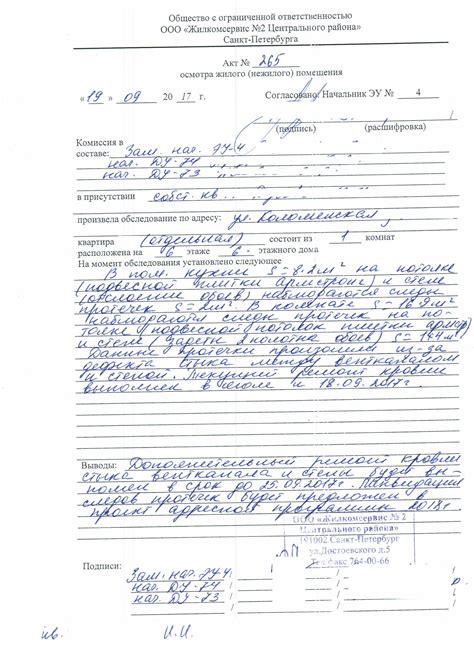 Общество с ограниченной ответственностью
ООО «Жилкомсервис №2 Центрального района»
Санкт-Петербурга
Акт № 265
осмотра жилого (нежилого) помещения
«19» 09 2017 г. Согласовано: Начальник ЭУ № 4
(подпись) (расшифровка)
Комиссия в
составе: Зам. нач. ЭУ-4
нач. ДУ-74
нач. ДУ-73
в присутствии собст. кв.
произвела обследование по адресу: ул. Коломенская,
квартира (отдельная) состоит из 1 комнат
расположена на 6 этаже 6 - этажного дома
На момент обследования установлено следующее
В пом. кухни S=8.2м² на потолке
(подвесной плитки армстронг) и стене
(отслоении обоев) наблюдаются следы
протечек S=2м². В комнате S=18.9м²
наблюдаются следы протечек на по-
толке подвесной потолок плитки
и стене (2 полотна обоев)
Данные протечки произошли из-за
дефекта стыка между вентканалом
и стеной. Текущий ремонт кровли
выполнен 18.09.2017г
Выводы: Дополнительный ремонт кровли
стыка вентканала и стены будет вы-
полнен в срок до 25.09.2017г. Ликвидация
следов протечек будет предложен в
проект адресной программы 2018г.
ООО «Жилкомсервис № 2
Центрального района»
191002 Санкт-Петербург
ул.Достоевского д.5
Тел/факс 764-00-66
Подписи:
Зам. нач. ЭУ-4
нач. ДУ-74
нач. ДУ-73
кв. И.И.